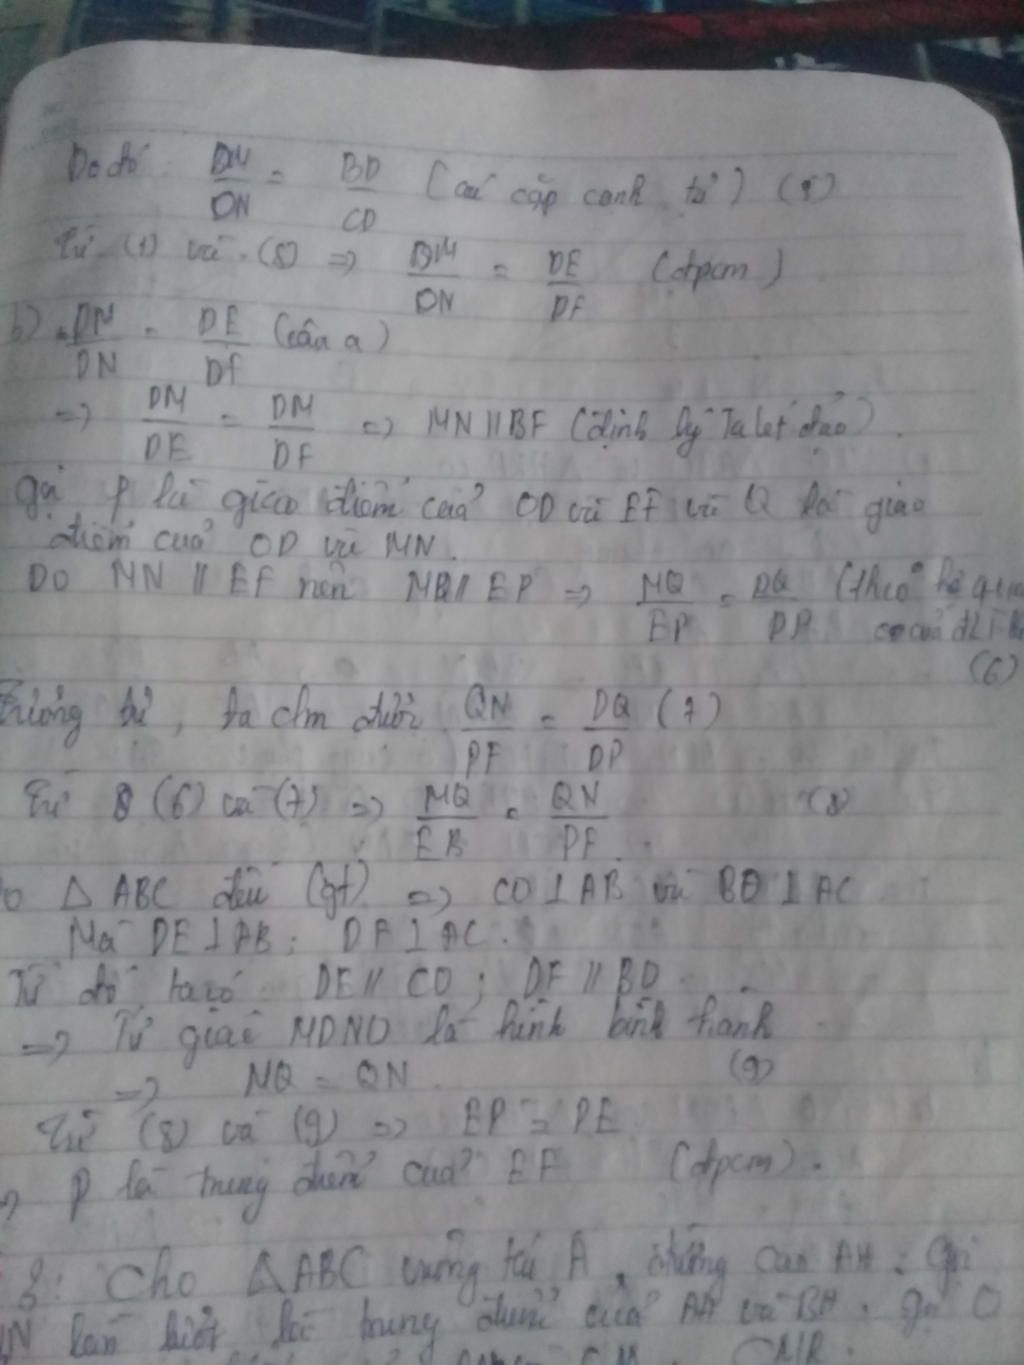 Do đó DM/DN = BD/CD (các cặp cạnh tứ) (5)
Từ (1) và (5) => DM/DN = DE/DF (đpcm)
b) DM/DN = DE/DF (câu a)
=> DM/DE = DM/DF => MN // BF (định lý Ta let đảo).
Gọi P là giao điểm của OD và EF và Q là giao
điểm của OD và MN.
Do MN // EF nên MQ // EP => MQ/EP = DQ/DP (theo hệ quả
của đL
(6)
Tương tự, ta cm được QN/PF = DQ/DP (7)
Từ (6) và (7) => MQ/EB = QN/PF (8)
Δ ABC đều (gt) => CO ⊥ AB và BO ⊥ AC
Mà DE ⊥ AB; DF ⊥ AC.
Từ đó, ta có DE // CO; DF // BO
=> Tứ giác MDNO là hình bình hành
=> MQ = QN. (9)
Từ (8) và (9) => EP = PE
=> P là trung điểm của EF (đpcm).
8: Cho Δ ABC vuông tại A, đường cao AH. Gọi
N lần lượt là trung điểm của AH và BH. gọi O
CM. CMR: